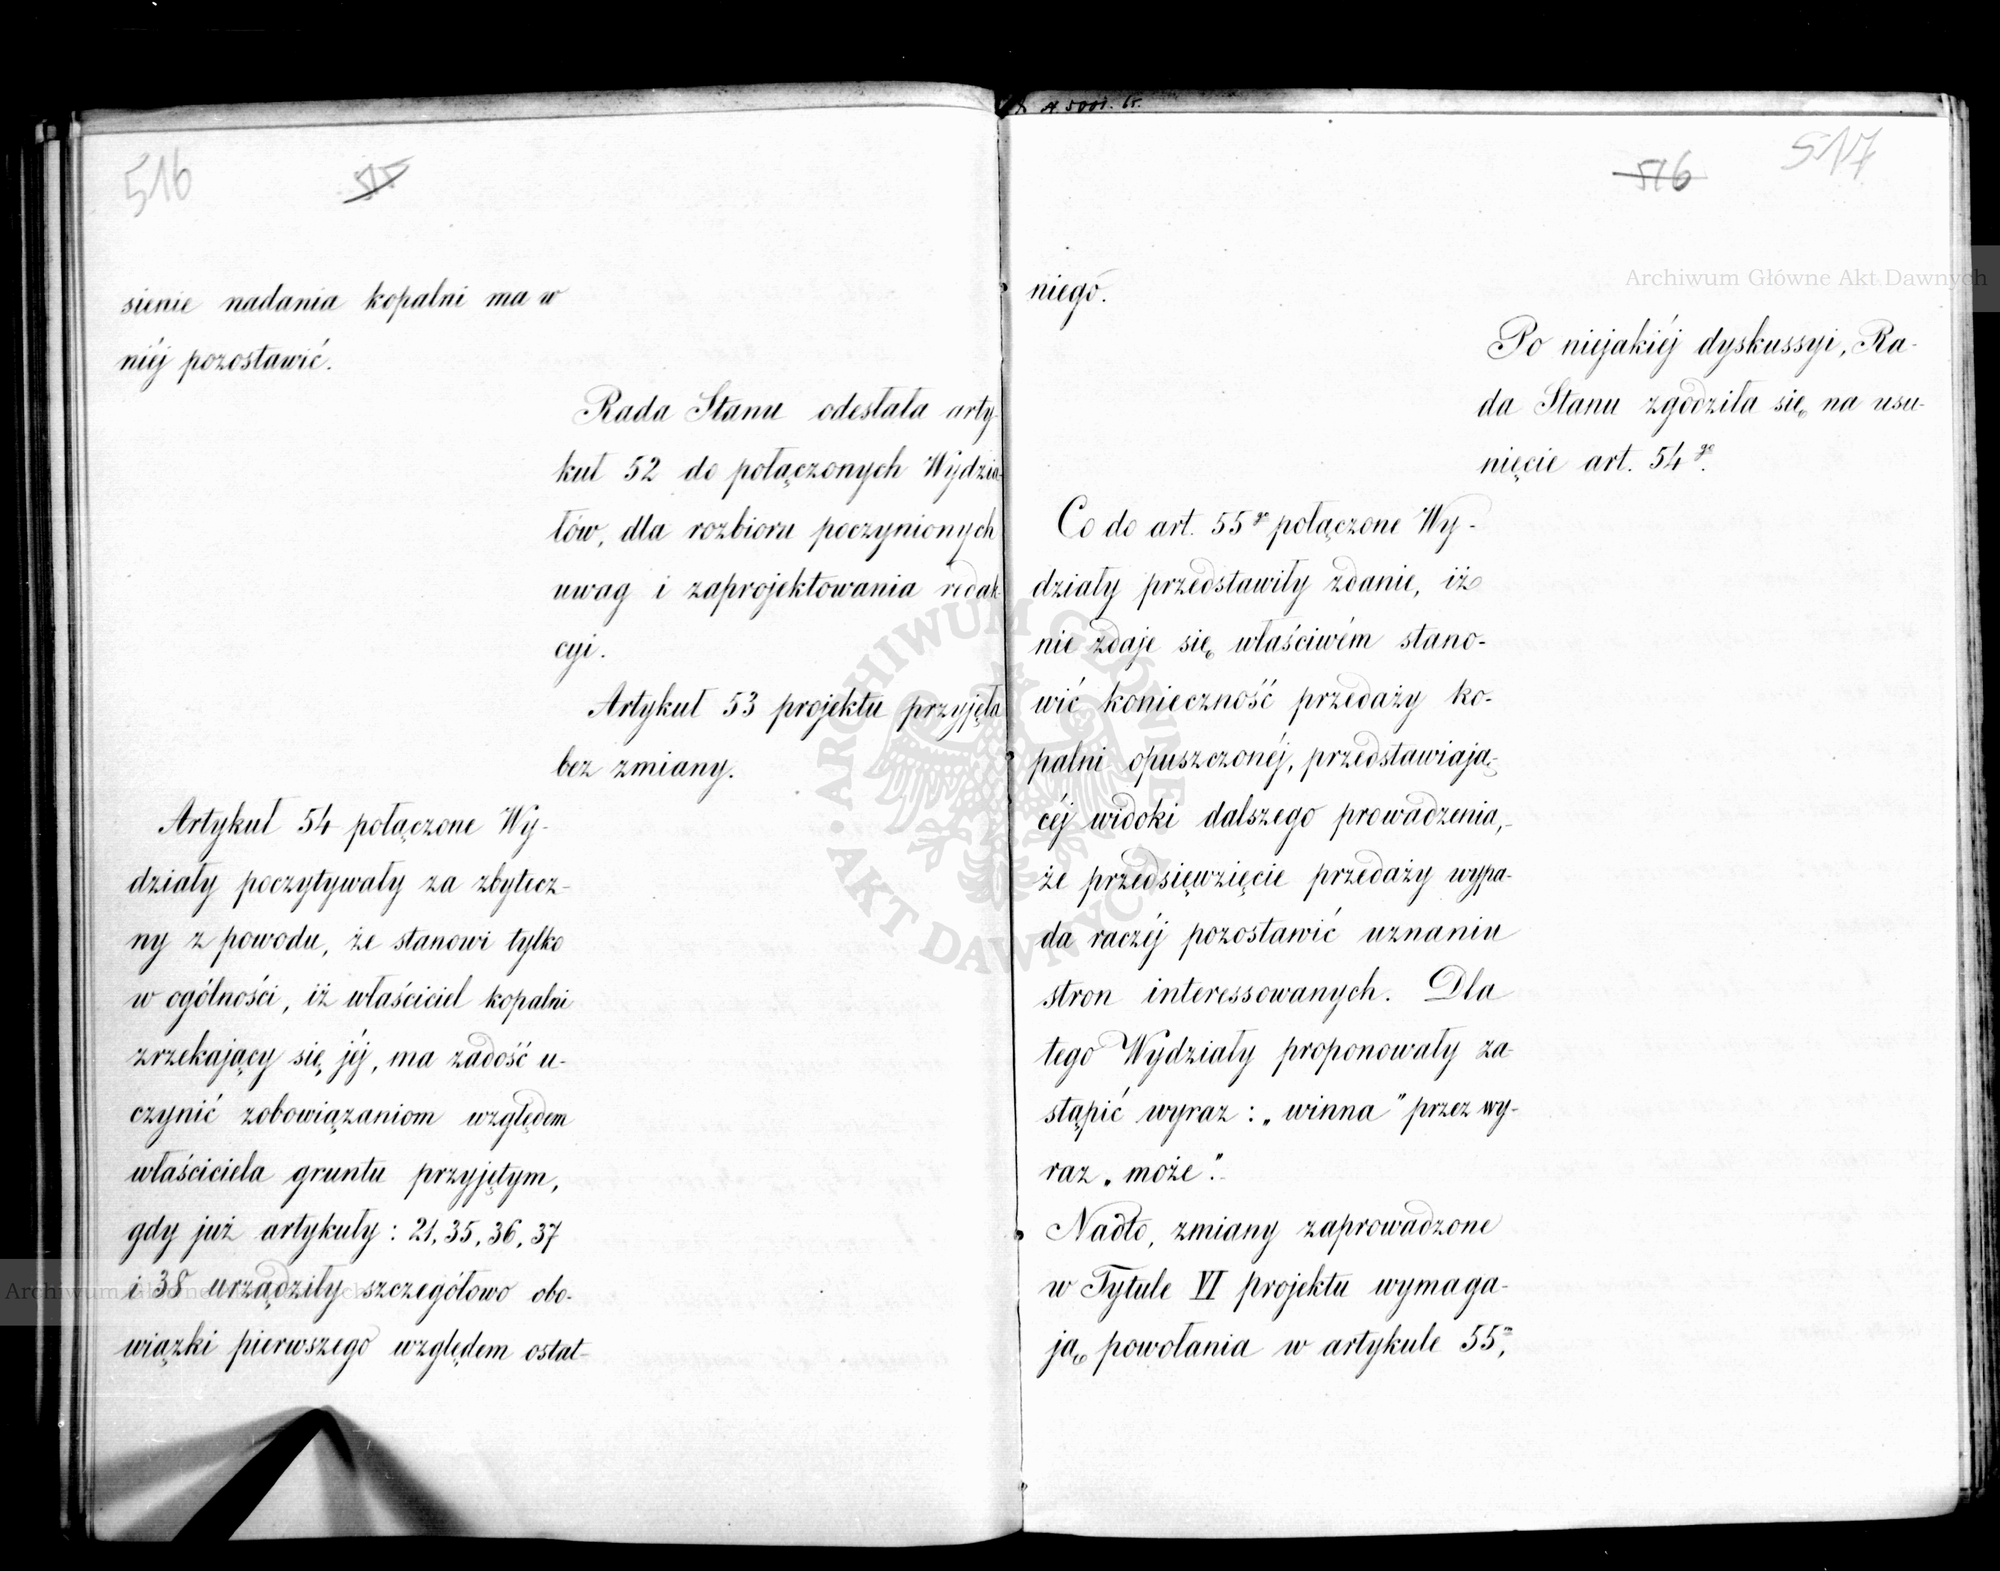 516 515
sienie nadania kopalni ma w
niéj pozostawić.
Rada Stanu odesłała arty-
kuł 52 do połączonych Wydzia-
łów, dla rozbioru poczynionych
uwag i zaprojektowania redak-
cyi.
Artykuł 53 projektu przyjęła
bez zmiany.
Artykuł 54 połączone Wy-
działy poczytywały za zbytecz-
ny z powodu, że stanowi tylko
w ogólności, iż właściciel kopalni
zrzekający się jéj, ma zadość u-
czynić zobowiązaniom względem
właściciela gruntu przyjętym,
gdy już artykuły: 21, 35, 36, 37
i 38 urządziły szczegółowo obo-
wiązki pierwszego względem ostat-
516 517
niego.
Po niejakiéj dyskussyi, Ra-
da Stanu zgodziła się na usu-
nięcie art. 54go.
Co do art. 55go połączone Wy-
działy przedstawiły zdanie, iż
nie zdaje się właściwém stano-
wić konieczność przedaży ko-
palni opuszczonéj, przedstawiają-
céj widoki dalszego prowadzenia,-
że przedsięwzięcie przedaży wypa-
da raczéj pozostawić uznaniu
stron interessowanych. Dla
tego Wydziały proponowały za-
stąpić wyraz: „winna” przez wy-
raz „może”.
Nadto, zmiany zaprowadzone
w Tytule VI projektu wymaga-
ją powołania w artykule 55m,
Archiwum Główne Akt Dawnych
ARCHIWUM GŁÓWNE • AKT DAWNYCH •
Archiwum Główne Akt Dawnych